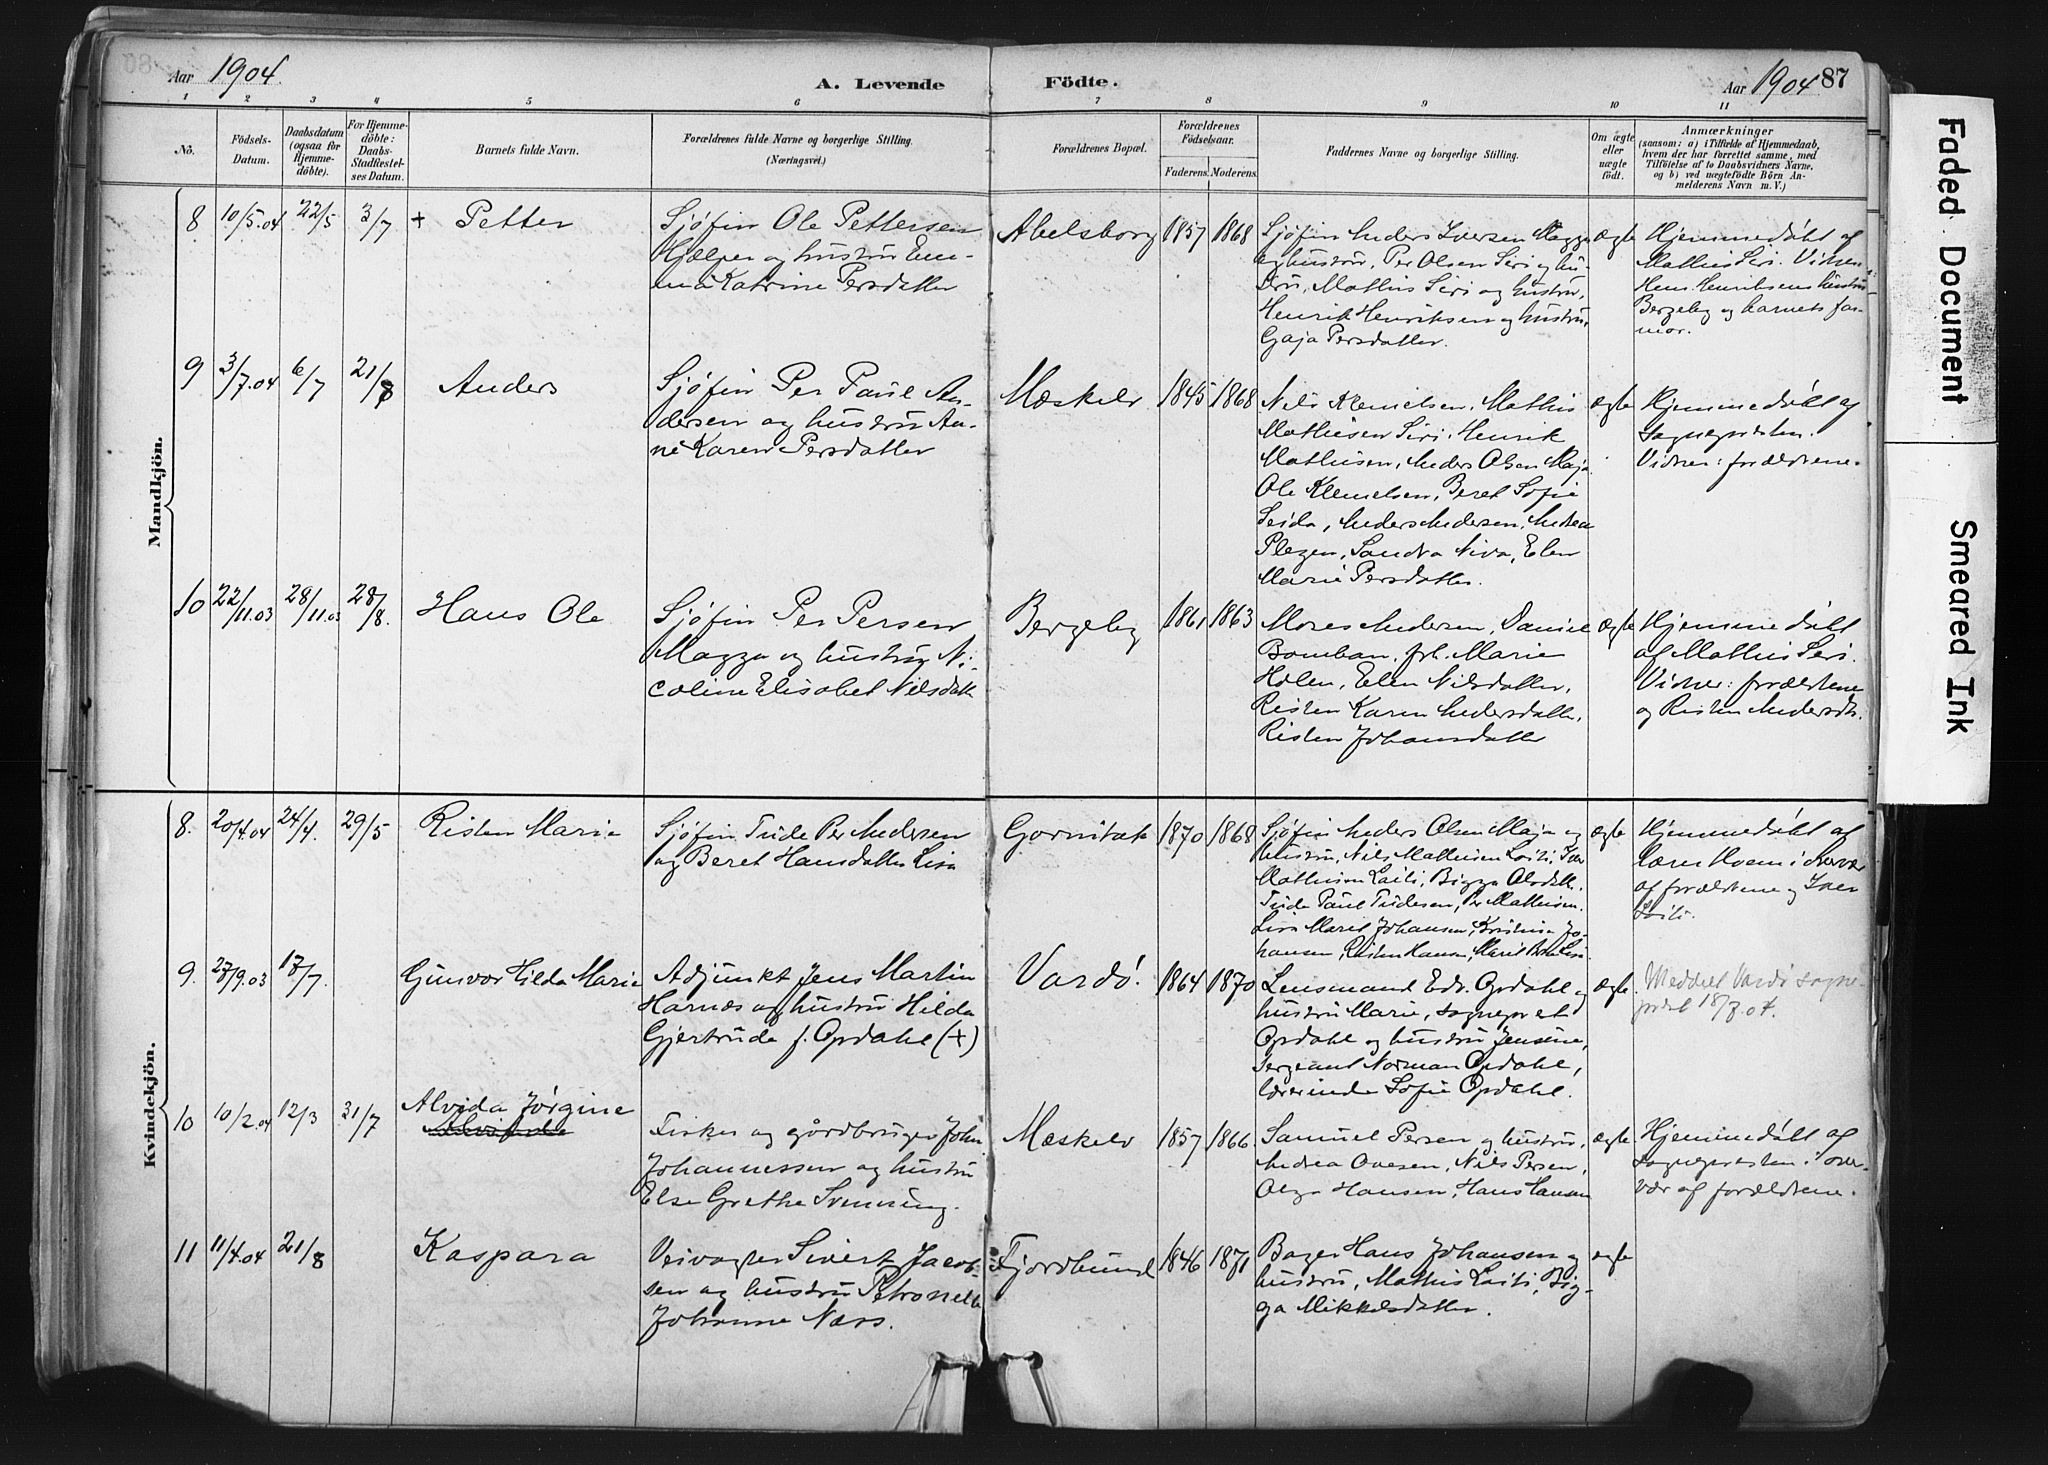 Aar 1904.
A. Levende Fødte.
Aar 1904 87
1 2 3 4 5 6 7 8 9 10 11
No.
Fødsels-
Datum.
Daabsdatum
(ogsaa for
Hjemme-
døbte).
For Hjemme-
døbte:
Daabs-
Stadfæstel-
ses Datum.
Barnets fulde Navn.
Forældrenes fulde Navne og borgerlige Stilling.
(Næringsvei.)
Forældrenes Bopæl.
Forældrenes
Fødselsaar.
Faderens. Moderens.
Faddernes Navne og borgerlige Stilling.
Om ægte
eller
uægte
født.
Anmærkninger
(saasom: a) i Tilfælde af Hjemmedaab,
hvem der har forrettet samme, med
Tilføielse af to Daabsvidners Navne,
og b) ved uægtefødte Børn An-
melderens Navn m. V.)
Mandkjön.
8 10/5.04 22/5 3/7 + Petter
Sjøfin Ole Pettersen
Hjælper og hustru Em-
ma Katrine Persdatter
Abelsborg 1857 1868
Sjøfin Anders Iversen Magga
og hustru, Per Olsen Siri og hu-
stru, Mathis Siri og hustru,
Henrik Henriksen og hustru,
Gaja Persdatter.
ægte
Hjemmedøbt af
Mathis Siri. Vidner:
Hens. Henriksens hustru
Bergeby og barnets far-
mor.
9 3/7.04 6/7 21/8 Anders
Sjøfin Per Paul An-
dersen og hustru An-
ne Karen Persdatter
Mæskelv 1845 1868
Nils Klemetsen, Mathis
Mathisen Siri, Henrik
Mathisen, Anders Olsen Maja
Ole Klemetsen, Beret Sofie
Seida, Anders Andersen, Andrea
Plezen, Sandra Niva, Elen
Marie Persdatter.
ægte
Hjemmedøbt af
sognepresten.
Vidner: forældrene.
10 22/11.03 28/11.03 28/8. Hans Ole
Sjøfin Per Persen
Magga og hustru Ni-
coline Elisabet Nilsdatt
Bergeby 1861 1863
Moses Andersen, Daniel
Bomban, frk. Marie
Holen, Elen Nilsdatter,
Risten Karen Andersdatter,
Risten Johansdatter
ægte
Hjemmedøbt
af Mathis Siri.
Vidner: forældrene
og Risten Andersdtr.
Kvindekjön.
8. 20/4.04 24/4. 29/5 Risten Marie
Sjøfin Tude Per Andersen
og Beret Hansdatter Lisa
Gornitak 1870 1868
Sjøfin Anders Olsen Maja og
hustru, Nils Mathisen Laiti, Iver
Mathisen Laiti, Bigga Olsdtr.
Tude Paul Tudesen, Per Mathisen
Lisa Marit Johansen, Kristine Jo-
hansen, Risten Hansen, Marit
ægte
Hjemmedøbt af
lærer Hveem i overvær
af forældrene og Iver
Laiti.
9. 27/9.03 17/7. Gunvor Hilda Marie
Adjunkt Jens Martin
Harnæs og hustru Hilda
Gjertrude f. Opdahl (+)
Vardø. 1864 1870
Lensmand Edv. Opdahl og
hustru Marie, sogneprest
Opdahl og hustru Jensine,
sergeant Norman Opdahl,
lærerinde Sofie Opdahl.
ægte.
Meddelt Vardø sogne-
prest 18/7.04.
10 10/2.04 12/3 31/7 Alvida Jørgine
Fisker og gårdbruger John
Johannessen og hustru
Else Grethe Svenning.
Mæskelv 1857 1866
Samuel Persen og hustru,
Andrea Ovesen, Nils Persen,
Olga Hansen, Hans Hansen
ægte
Hjemmedøbt af
sognepresten i over-
vær af forældrene.
11 11/4.04 21/8 Kaspara
Veivogter Sivert Jacob-
sen og hustru Petronelle
Johanne Næss.
Fjordbund 1846 1871
Bager Hans Johansen og
hustru, Mathis Laiti, Big-
ga Mikkelsdatter.
ægte
Faded Document
Smeared Ink